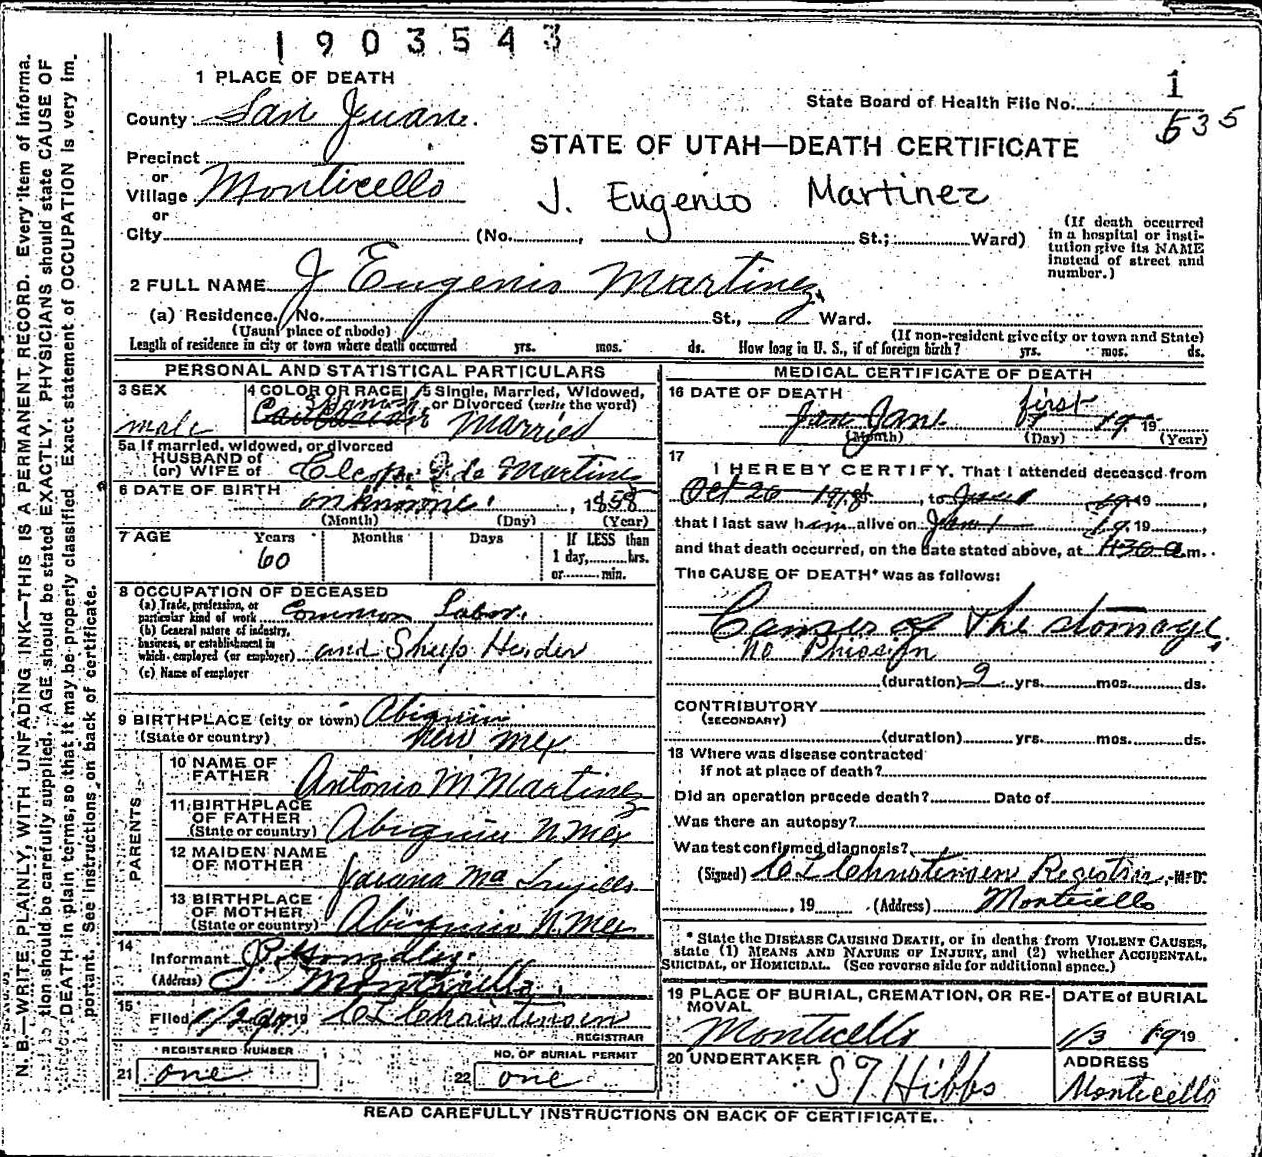 1903543
1 PLACE OF DEATH
County San Juan.
Precinct
or
Village Monticello
or
City (No. , St.; Ward)
State Board of Health File No. 1
635
STATE OF UTAH—DEATH CERTIFICATE
J. Eugenio Martinez
(If death occurred
in a hospital or insti-
tution give its NAME
instead of street and
number.)
2 FULL NAME J Eugenio Martinez
(a) Residence. No. St., Ward.
(Usual place of abode) (If non-resident give city or town and State)
Length of residence in city or town where death occurred yrs. mos. ds. How long in U. S., if of foreign birth? yrs. mos. ds.
PERSONAL AND STATISTICAL PARTICULARS
3 SEX
male
4 COLOR OR RACE
5 Single, Married, Widowed,
or Divorced (write the word)
Married
5a If married, widowed, or divorced
HUSBAND of
(or) WIFE of de Martinez
6 DATE OF BIRTH
unknown , 1858
(Month) (Day) (Year)
7 AGE Years Months Days If LESS than
60 1 day, hrs.
or min.
8 OCCUPATION OF DECEASED
(a) Trade, profession, or
particular kind of work Common Labor
(b) General nature of industry,
business, or establishment in
which employed (or employer) and Sheep Herder
(c) Name of employer
9 BIRTHPLACE (city or town) Abiquiu
(State or country) New Mex
PARENTS
10 NAME OF
FATHER Antonio M Martinez
11 BIRTHPLACE
OF FATHER
(State or country) Abiquiu N Mex
12 MAIDEN NAME
OF MOTHER Ma Trujillo
13 BIRTHPLACE
OF MOTHER
(State or country) Abiquiu N. Mex
14
Informant
(Address) Monticello
15
Filed 19 C L Christensen
REGISTRAR
REGISTERED NUMBER
21 one
NO. OF BURIAL PERMIT
22 one
MEDICAL CERTIFICATE OF DEATH
16 DATE OF DEATH
Jan first 1919
(Month) (Day) (Year)
17
I HEREBY CERTIFY, That I attended deceased from
Oct 20 1918, to Jan 1 1919,
that I last saw him alive on Jan 1 1919,
and that death occurred, on the date stated above, at 430 a m.
The CAUSE OF DEATH* was as follows:
Canser of the stomage,
no
(duration) 2 yrs. mos. ds.
CONTRIBUTORY
(SECONDARY)
(duration) yrs. mos. ds.
18 Where was disease contracted
if not at place of death?
Did an operation precede death? Date of
Was there an autopsy?
Was test confirmed diagnosis?
(Signed) C L Christensen Registrar, M. D.
, 19 (Address) Monticello
* State the DISEASE CAUSING DEATH, or in deaths from VIOLENT CAUSES,
state (1) MEANS AND NATURE OF INJURY, and (2) whether ACCIDENTAL,
SUICIDAL, or HOMICIDAL. (See reverse side for additional space.)
19 PLACE OF BURIAL, CREMATION, OR RE-
MOVAL
Monticello
DATE of BURIAL
1/3 1919
20 UNDERTAKER
S T Hibbs
ADDRESS
Monticello
READ CAREFULLY INSTRUCTIONS ON BACK OF CERTIFICATE.
N. B.—WRITE PLAINLY, WITH UNFADING INK—THIS IS A PERMANENT RECORD. Every item of informa-
tion should be carefully supplied. AGE should be stated EXACTLY. PHYSICIANS should state CAUSE OF
DEATH in plain terms, so that it may be properly classified. Exact statement of OCCUPATION is very im-
portant. See instructions on back of certificate.